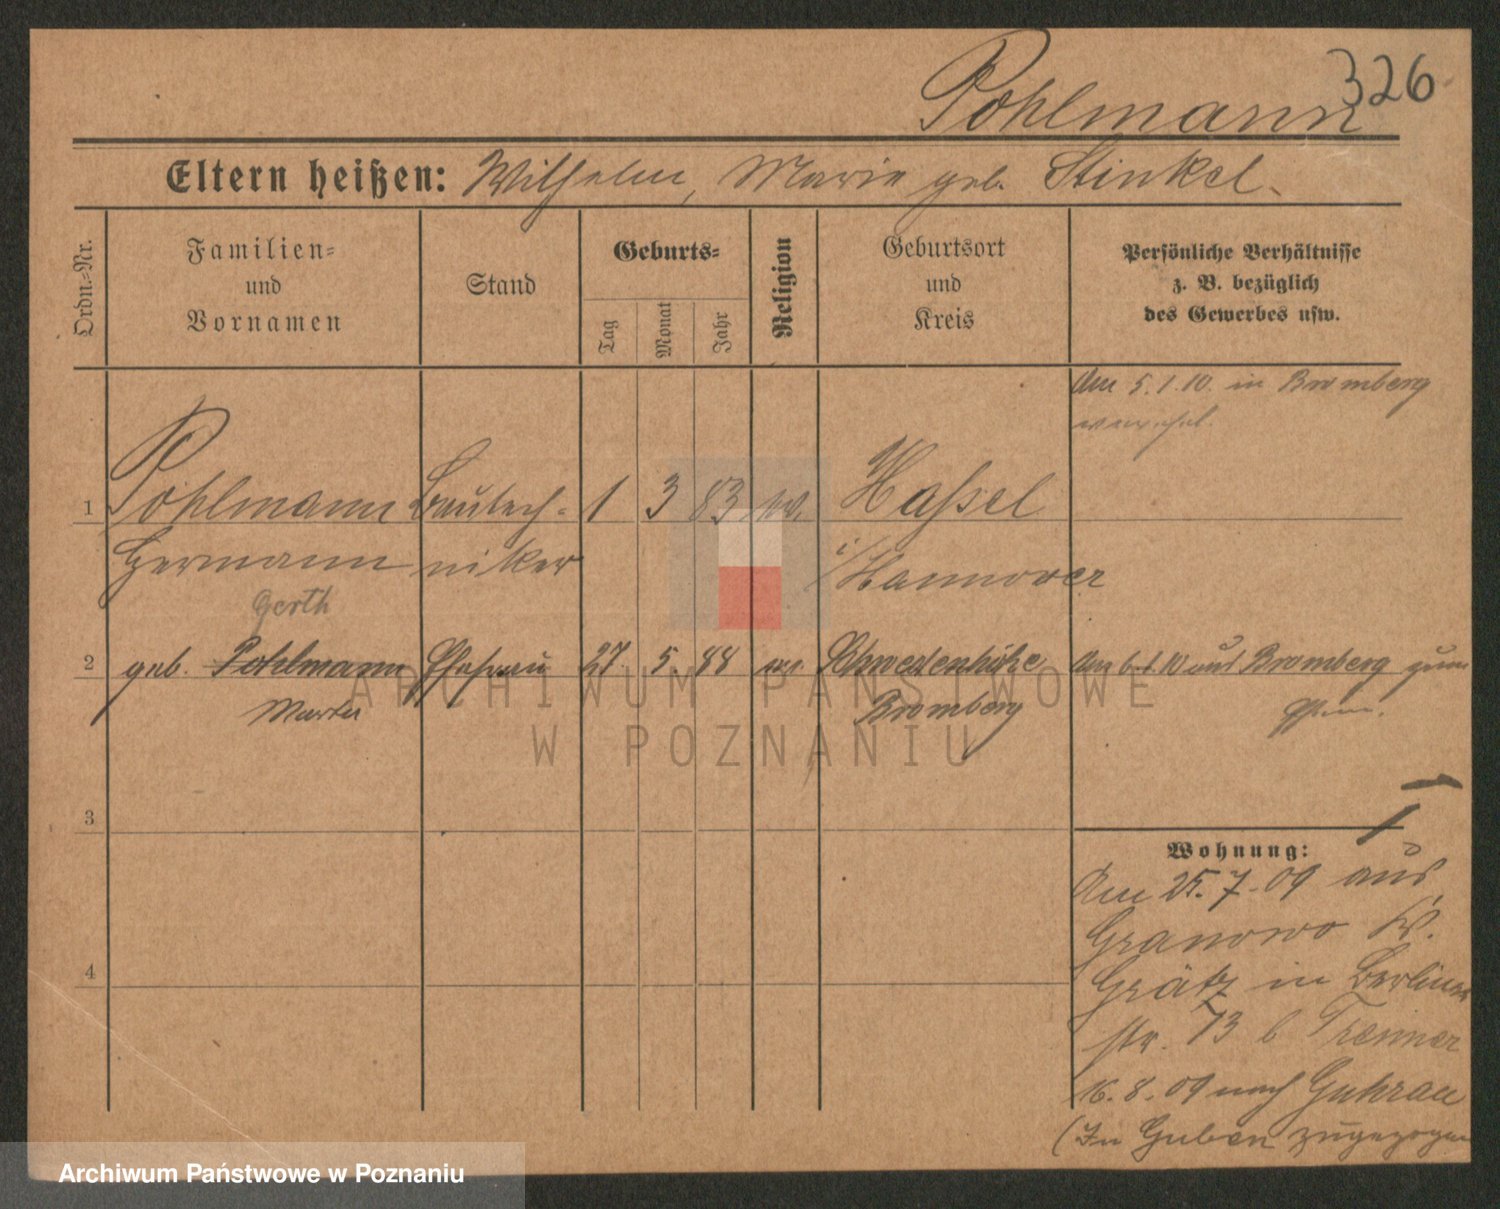 326
Pohlmann
Eltern heißen: Wilhelm, Marie geb. Stinkel.
Ordn.-Nr.
Familien- und Vornamen
Stand
Geburts-
Tag
Monat
Jahr
Religion
Geburtsort und Kreis
Persönliche Verhältnisse
z. B. bezüglich
des Gewerbes usw.
Am 5.1.10. in Bromberg
verehel.
1 Pohlmann Bautech- 1 3 83 ev. Haßel
Hermann niker i/Hannover
Gerth
2 geb. Pohlmann Ehefrau 27 5. 88 ev. Schwedenhöhe Am 6.1.10 aus Bromberg zum
Martha Bromberg Ehem.
3
Wohnung:
Am 25.7.09 aus
Granowo Kr.
4 Grätz in Berliner
str. 73 b Trenner
16.8.09 nach Guhrau
(In Guben zugezogen
ARCHIWUM PAŃSTWOWE
W POZNANIU
Archiwum Państwowe w Poznaniu